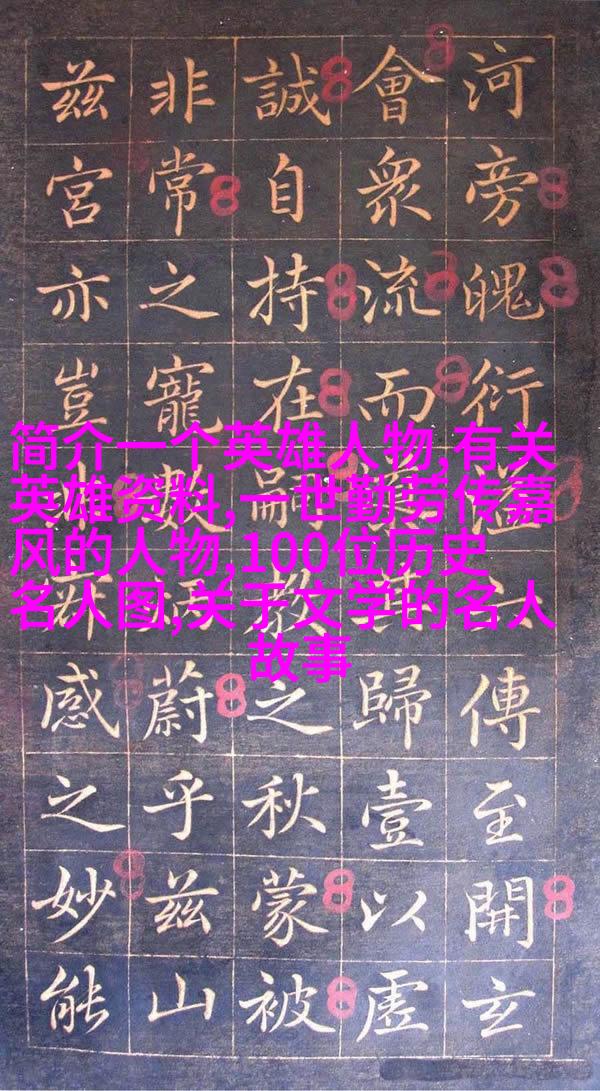 河旁魄衍溢傳至開玄
會衆流而其歸壹以虛
誠自持在嗣教之秋蒙被
非常之寵數蔚乎茲山
茲宮亦豈感之妙能
简介一个英雄人物,有关
英雄资料,一世勤劳传嘉
风的人物,100位历史
名人图,关于文学的名人
故事